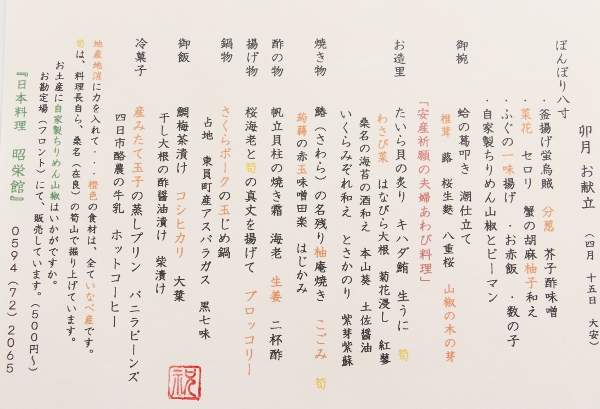 卯月 お献立 (四月 十五日 大安)
ぼんぼり八寸
・釜揚げ蛍烏賊 分葱 芥子酢味噌
・菜花 セロリ 蟹の胡麻柚子和え
・ふぐの一味揚げ ・お赤飯 ・数の子
・自家製ちりめん山椒とピーマン
御椀 蛤の葛叩き 潮仕立て
椎茸 蕗 桜生麩 八重桜 山椒の木の芽
「安産祈願の夫婦あわび料理」
お造里 たいら貝の炙り キハダ鮪 生うに 筍
わさび菜 はなびら大根 菊花浸し 紅蓼
桑名の海苔の酒和え 本山葵 土佐醤油
いくらみぞれ和え とさかのり 紫芽紫蘇
焼き物 鰆(さわら)の名残り柚庵焼き こごみ 筍
蒟蒻の赤玉味噌田楽 はじかみ
酢の物 帆立貝柱の焼き霜 海老 生姜 二杯酢
揚げ物 桜海老と筍の真丈を揚げて ブロッコリー
鍋物 さくらポークの玉じめ鍋
占地 東員町産アスパラガス 黒七味
御飯 鯛梅茶漬け コシヒカリ 大葉
干し大根の酢醤油漬け 柴漬け
冷菓子 産みたて玉子の蒸しプリン バニラビーンズ
四日市酪農の牛乳 ホットコーヒー
地産地消に力を入れて・・・橙色の食材は、全ていなべ産です。
筍は、料理長自ら、桑名(在良)の筍山で掘り上げています。
お土産に自家製ちりめん山椒はいかがですか。
お勘定場(フロント)にて、販売しています。(500円~)
『日本料理 昭栄館』 0594(72)2065
祝